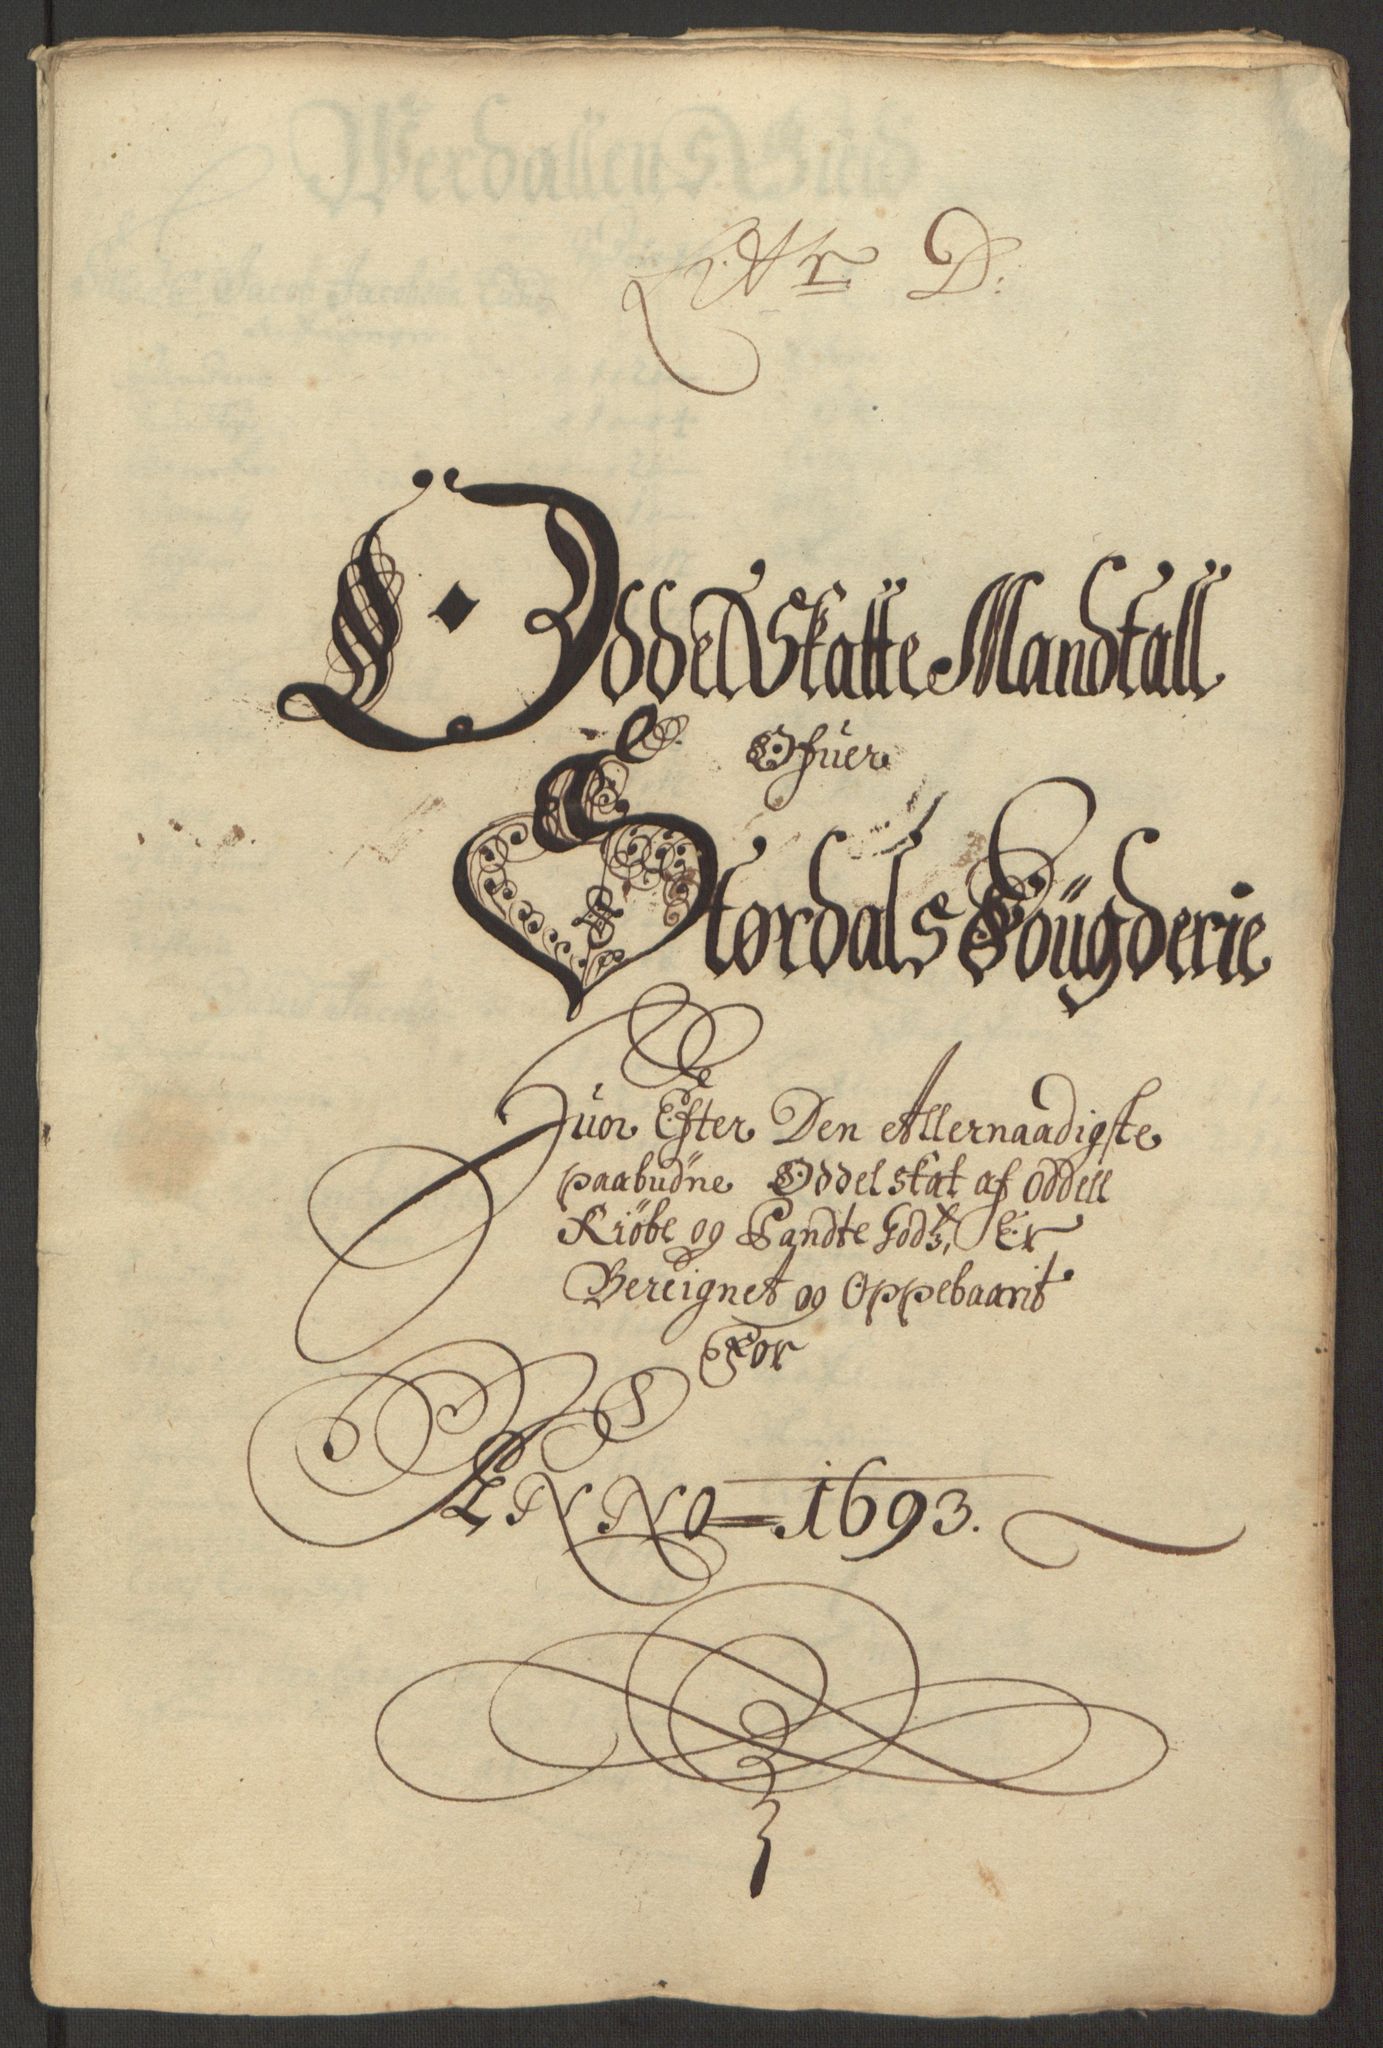 Littr D:
Oddel Skatte Mandtall
Ofuer
Størdals Fougderie
Huor Efter Den Allernaadigste
paabudne Oddelskat af oddell
Kiöbe og Pandte Godtz, Er
Bereignet og Oppebaarit
For
ANNO 1693.